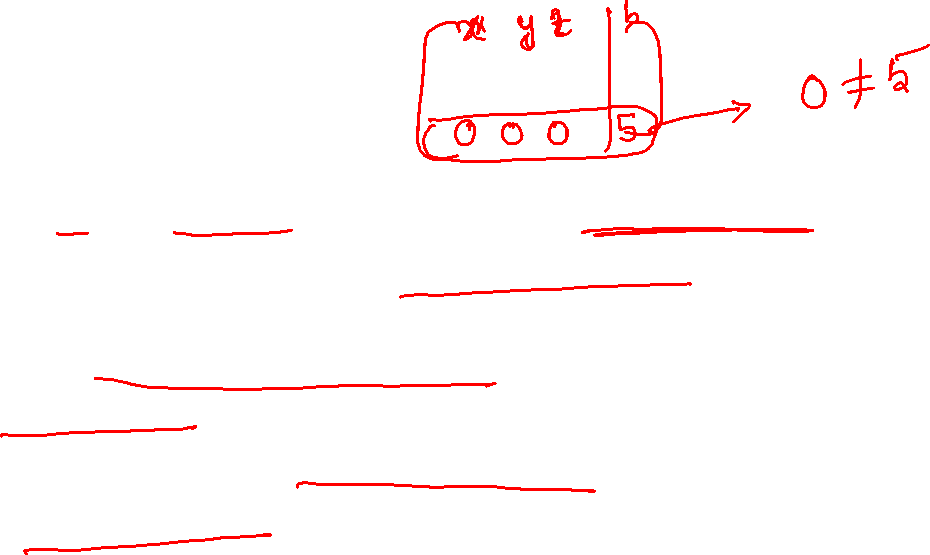 x y z | b
0 0 0 | 5
0 ≠ 5